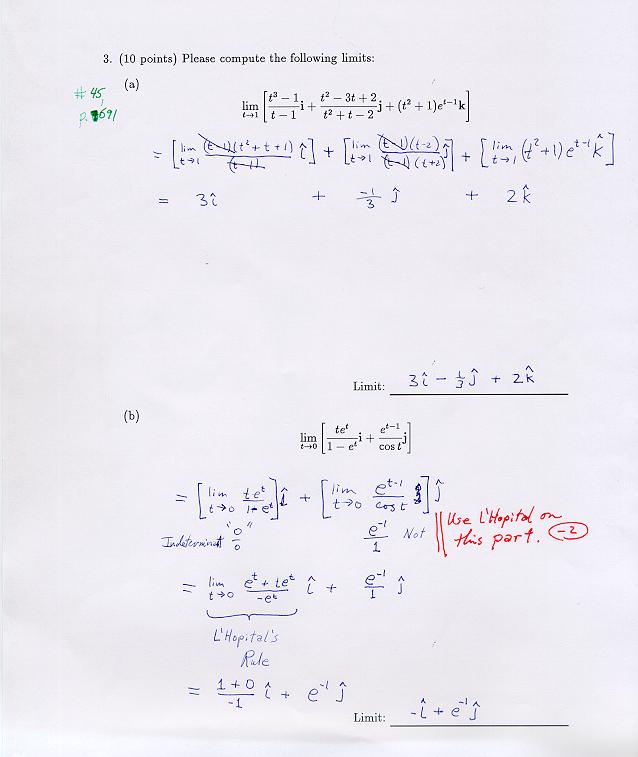 3. (10 points) Please compute the following limits:
#45, p. 691
(a)
lim_{t→1} [ (t³ − 1)/(t − 1) i + (t² − 3t + 2)/(t² + t − 2) j + (t² + 1)e^{t−1} k ]
= [ lim_{t→1} (t-1)(t² + t + 1)/(t-1) î ] + [ lim_{t→1} (t-1)(t-2)/((t-1)(t+2)) ĵ ] + [ lim_{t→1} (t²+1) e^{t-1} k̂ ]
= 3î + -1/3 ĵ + 2k̂
Limit: 3î − 1/3 ĵ + 2k̂
(b)
lim_{t→0} [ te^t/(1 − e^t) i + e^{t−1}/cos t j ]
= [ lim_{t→0} te^t/(1-e^t) ] î + [ lim_{t→0} e^{t-1}/cos t ] ĵ
Indeterminat "0/0" e^{-1}/1 Not
Use L'Hopital on
this part. -2
= lim_{t→0} (e^t + te^t)/(-e^t) î + e^{-1}/1 ĵ
L'Hopital's
Rule
= (1+0)/-1 î + e^{-1} ĵ
Limit: -î + e^{-1} ĵ